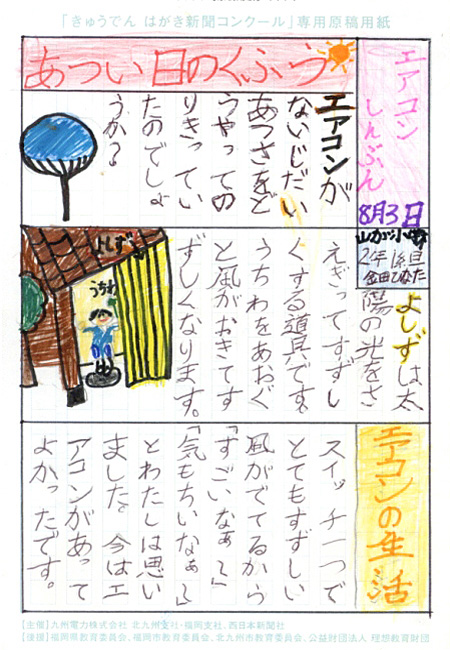 「きゅうでん はがき新聞コンクール」専用原稿用紙
エアコン
しんぶん
8月3日
あつい日のくふう
エアコンが
ないじだい
あつさをど
うやっての
りきってい
たのでしょ
うか?
よしずは太
陽の光をさ
えぎってすずし
くする道具です。
うちわをあおぐ
と風がおきてす
ずしくなります。
よしず
うちわ
エアコンの生活
スイッチ一つで
とてもすずしい
風がでてるから
「すごいなぁ~」
「気もちいなぁ~」
とわたしは思い
ました。今はエ
アコンがあって
よかったです。
【主催】九州電力株式会社 北九州支社・福岡支社、西日本新聞社
【後援】福岡県教育委員会、福岡市教育委員会、北九州市教育委員会、公益財団法人 理想教育財団